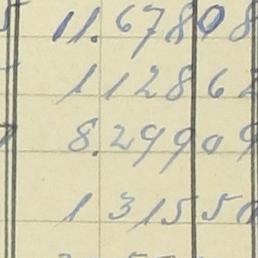 11.67808
11286
8.29909
13155